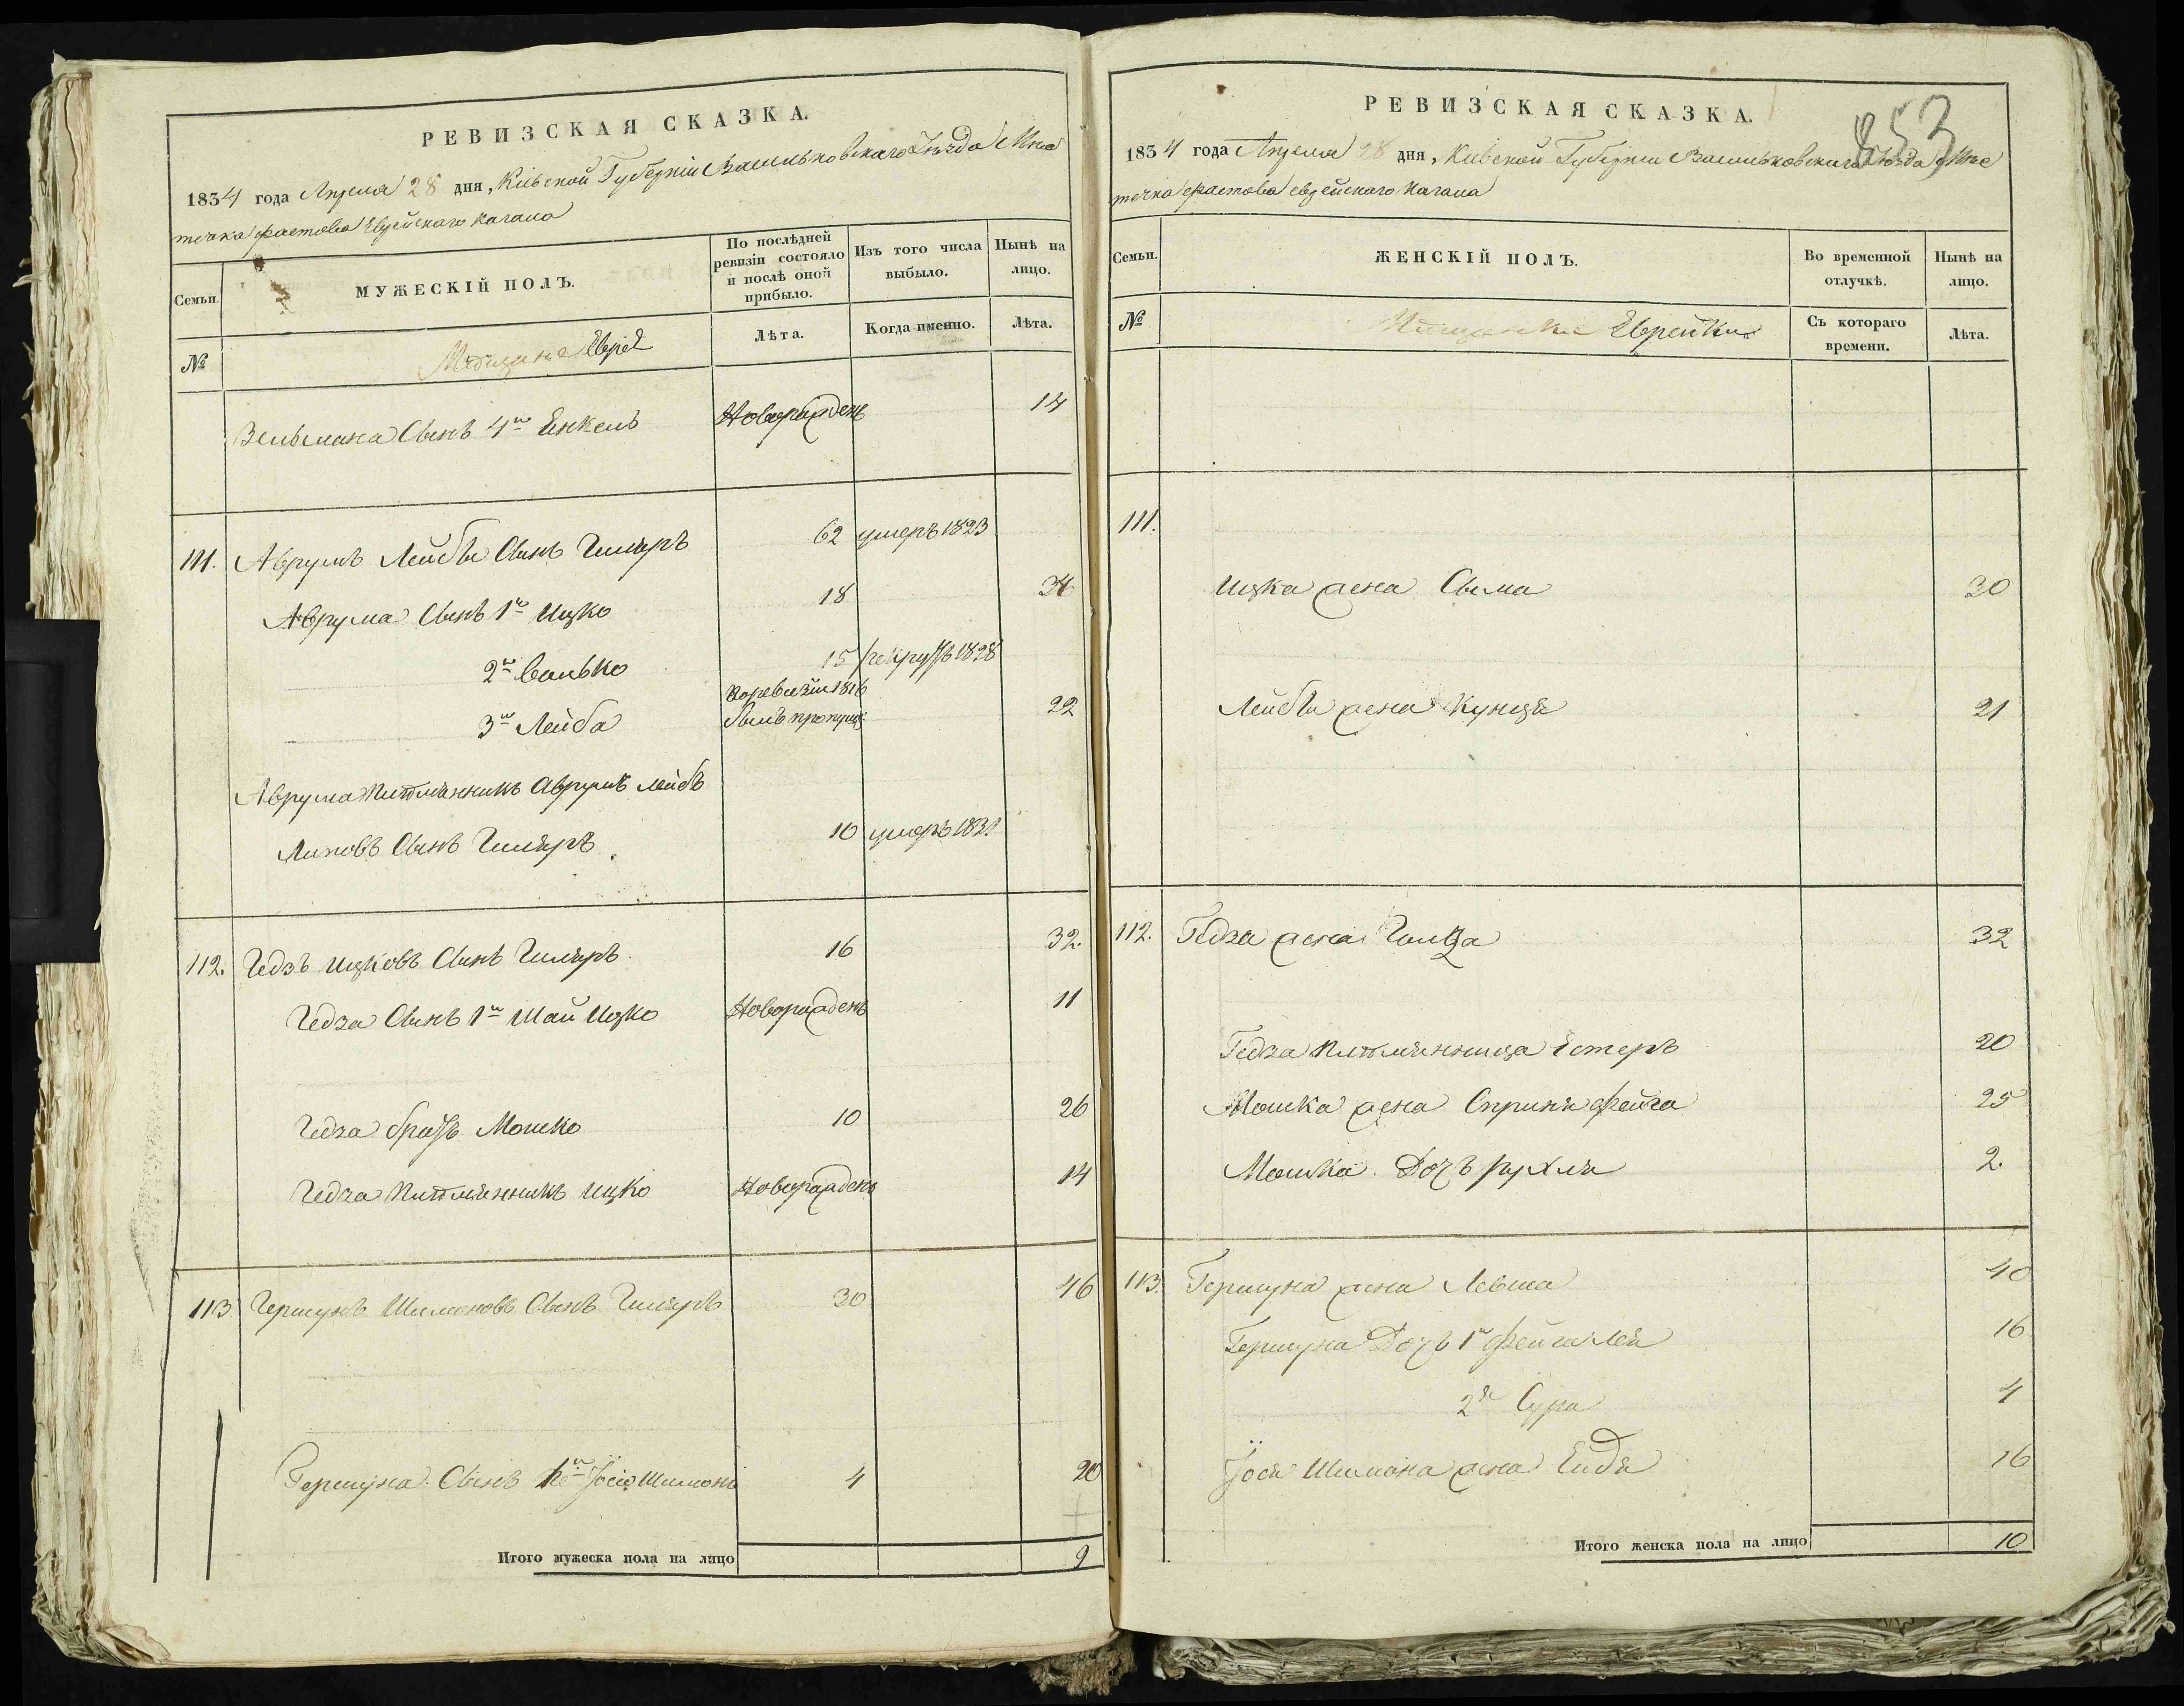 РЕВИЗСКАЯ СКАЗКА.
1834 года Апреля 28 дня, Кіевской Губерніи Васильковского Уезда Мѣс
течка Фастова Еврейскаго Кагала
Семьи.
МУЖЕСКІЙ ПОЛЪ.
По послѣдней ревизіи состояло и послѣ оной прибыло.
Изъ того числа выбыло.
Нынѣ на лицо.
№
Мещане Евреи
Лѣта.
Когда именно.
Лѣта.
Зельмана Сынъ 4й Енкель Новорожденъ 14
111. Аврумъ Лейби Сынъ Гимяръ 62 умеръ 1823
Аврума Сынъ 1й Ицко 18 34
2й Велько 15 рекрутъ 1828
3й Лейба поревизіи 1816 былъ пропущ: 22
Аврума Питмянникъ Аврумъ Лейбъ
Липовъ Сынъ Гимяръ 10 умеръ 1831
112. Гедзъ Ицковъ Сынъ Гимяръ 16 32.
Гедза Сынъ 1й Шай Ицко Новорожденъ 11
Гедза братъ Мошко 10 26
Гедза Питмянникъ Ицко Новорожденъ 14
113 Гершунъ Шимоновъ Сынъ Гимяръ 30 46
Гершуна Сынъ Іосіо Шимонъ 4 20
Итого мужеска пола на лицо 9
РЕВИЗСКАЯ СКАЗКА.
853
1834 года Апреля 28 дня, Кіевской Губерніи Васильковского Уезда Мѣс
течка Фастова еврейскаго Кагала
Семьи.
ЖЕНСКІЙ ПОЛЪ.
Во временной отлучкѣ.
Нынѣ на лицо.
№
Мещанки Еврейки
Съ котораго времени.
Лѣта.
111.
Ицка жена Сима 30
Лейби жена Кунця 21
112. Гедза жена Голда 32
Гедза Питмянница Естеръ 20
Мошка жена Сприня Фейга 25
Мошка Дочъ Рухля 2.
113. Гершуна жена 40
Гершуна Дочъ 1я Фейга Лея 16
2я Сура 4
Іося Шимона жена Ейдя 16
Итого женска пола на лицо 10